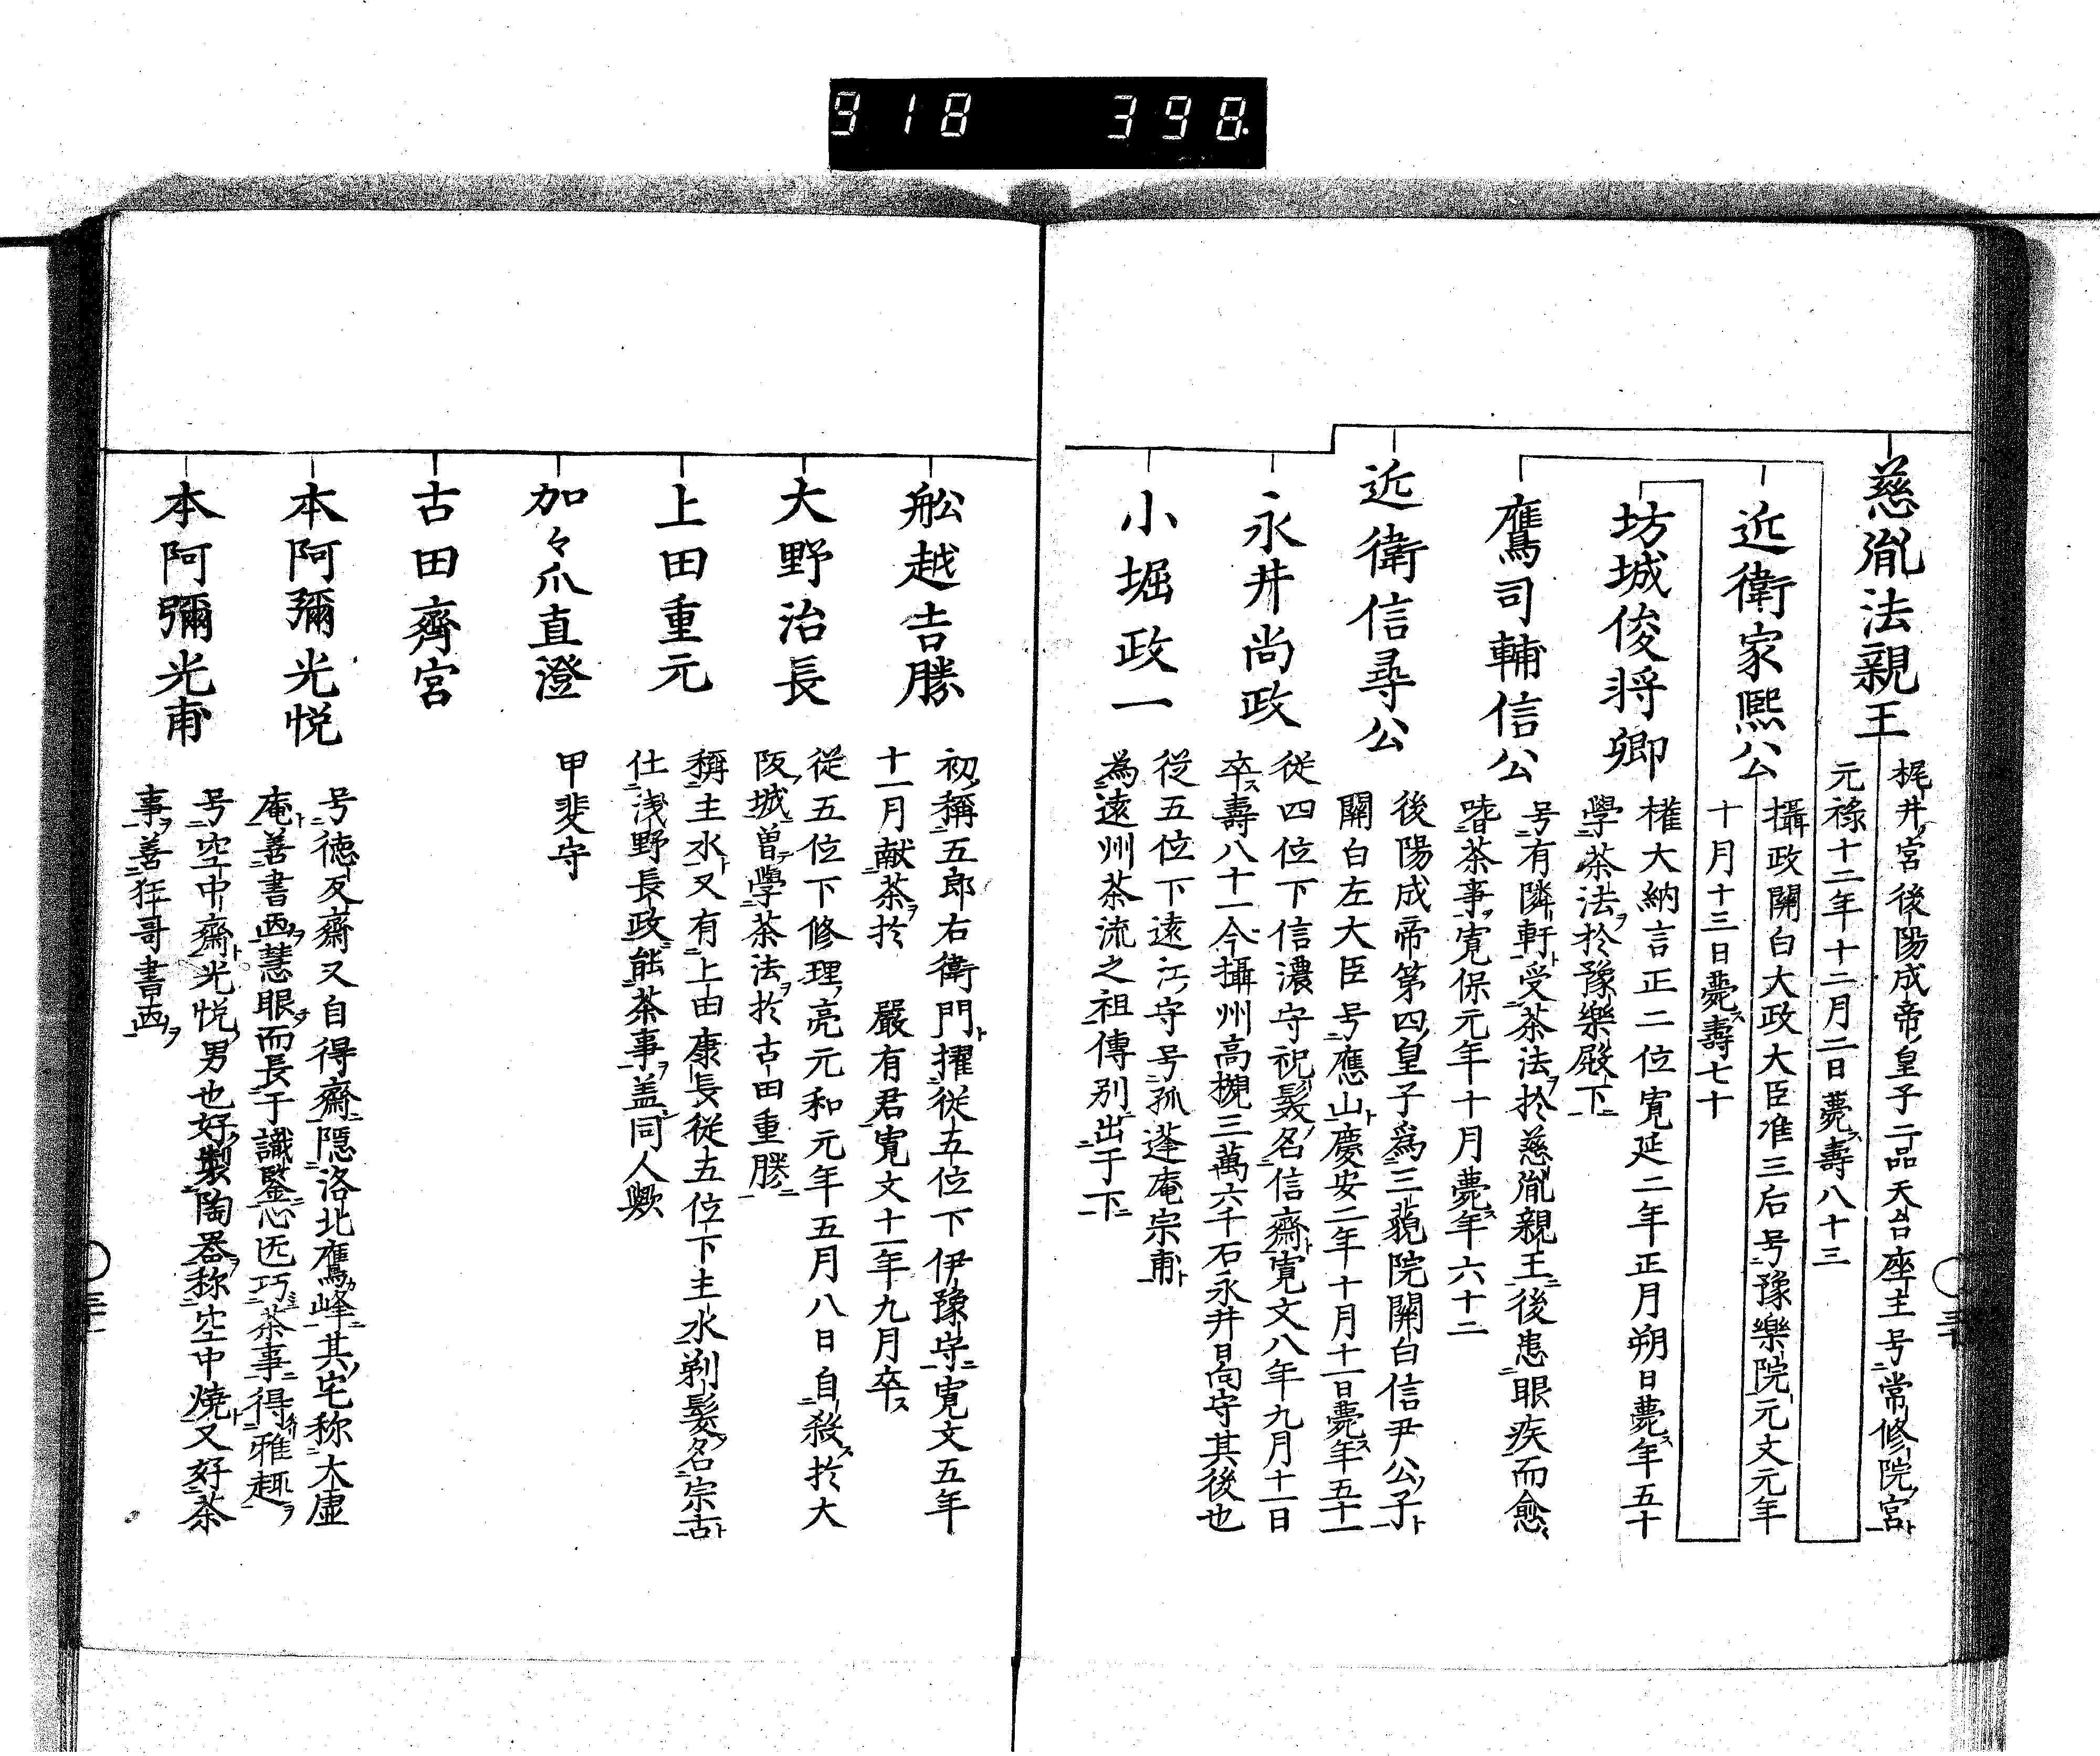 918 398
慈胤法親王
梶井宮後陽成帝皇子二品天台座主号常修院宮
元祿十二年十二月二日薨壽八十三
近衛家熈公
攝政關白大政大臣准三后号豫樂院元文元年
十月十三日薨壽七十
坊城俊将卿
權大納言正二位寛延二年正月朔日薨年五十
學茶法於豫樂殿下
鷹司輔信公
号有隣軒受茶法於慈胤親王後患眼疾而愈
嗜茶事寛保元年十月薨年六十二
近衛信尋公
後陽成帝第四皇子爲三藐院關白信尹公子
關白左大臣号應山慶安二年十月十一日薨年五十一
永井尚政
従四位下信濃守祝髪名信齋寛文八年九月十一日
卒壽八十一今攝州高槻三萬六千石永井日向守其後也
小堀政一
従五位下遠江守号孤蓬庵宗甫
為遠州茶流之祖傳别出于下
舩越吉勝
初稱五郎右衛門擢従五位下伊豫守寛文五年
十一月献茶於　嚴有君寛文十一年九月卒
大野治長
従五位下修理亮元和元年五月八日自殺於大
阪城曽學茶法於古田重勝
上田重元
稱主水又有上田康長従五位下主水剃髪名宗古
仕浅野長政能茶事盖同人歟
加々爪直澄
甲斐守
古田齊宮
本阿彌光悦
号徳友齋又自得齋隠洛北鷹峰其宅称大虚
庵善書画慧眼而長于識鑒心匠巧茶事得雅趣
本阿彌光甫
号空中齋光悦男也好製陶器称空中燒又好茶
事善狂哥書画